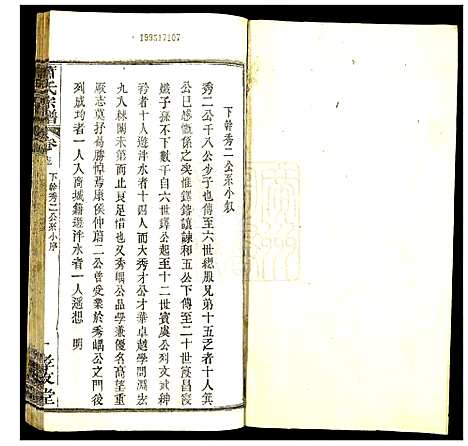 199517107
下幹秀二公系小敘
秀二公千八公少子也傳至六世總服兄弟十五之者十人箕
公已感慨係之矣惟鐸錦讓諫和五公下傳至二十世復昌復
熾子孫不下數千自六世鐸公起至十二世賓虞公列文武紳
衿者十人遊泮水者十四人而大秀才公才華卓越學問淵宏
九入棘闈未第而止足惜也又秀嵎公品學兼優名高望重
厥志莫抒曷勝悼焉康侯仲蔚二公曾受業於秀嵎公之門後
列成均者一人入商城籍遊泮水者一人遥想　明
蕭氏宗譜
卷
下幹秀二公系小序
一
孝友堂